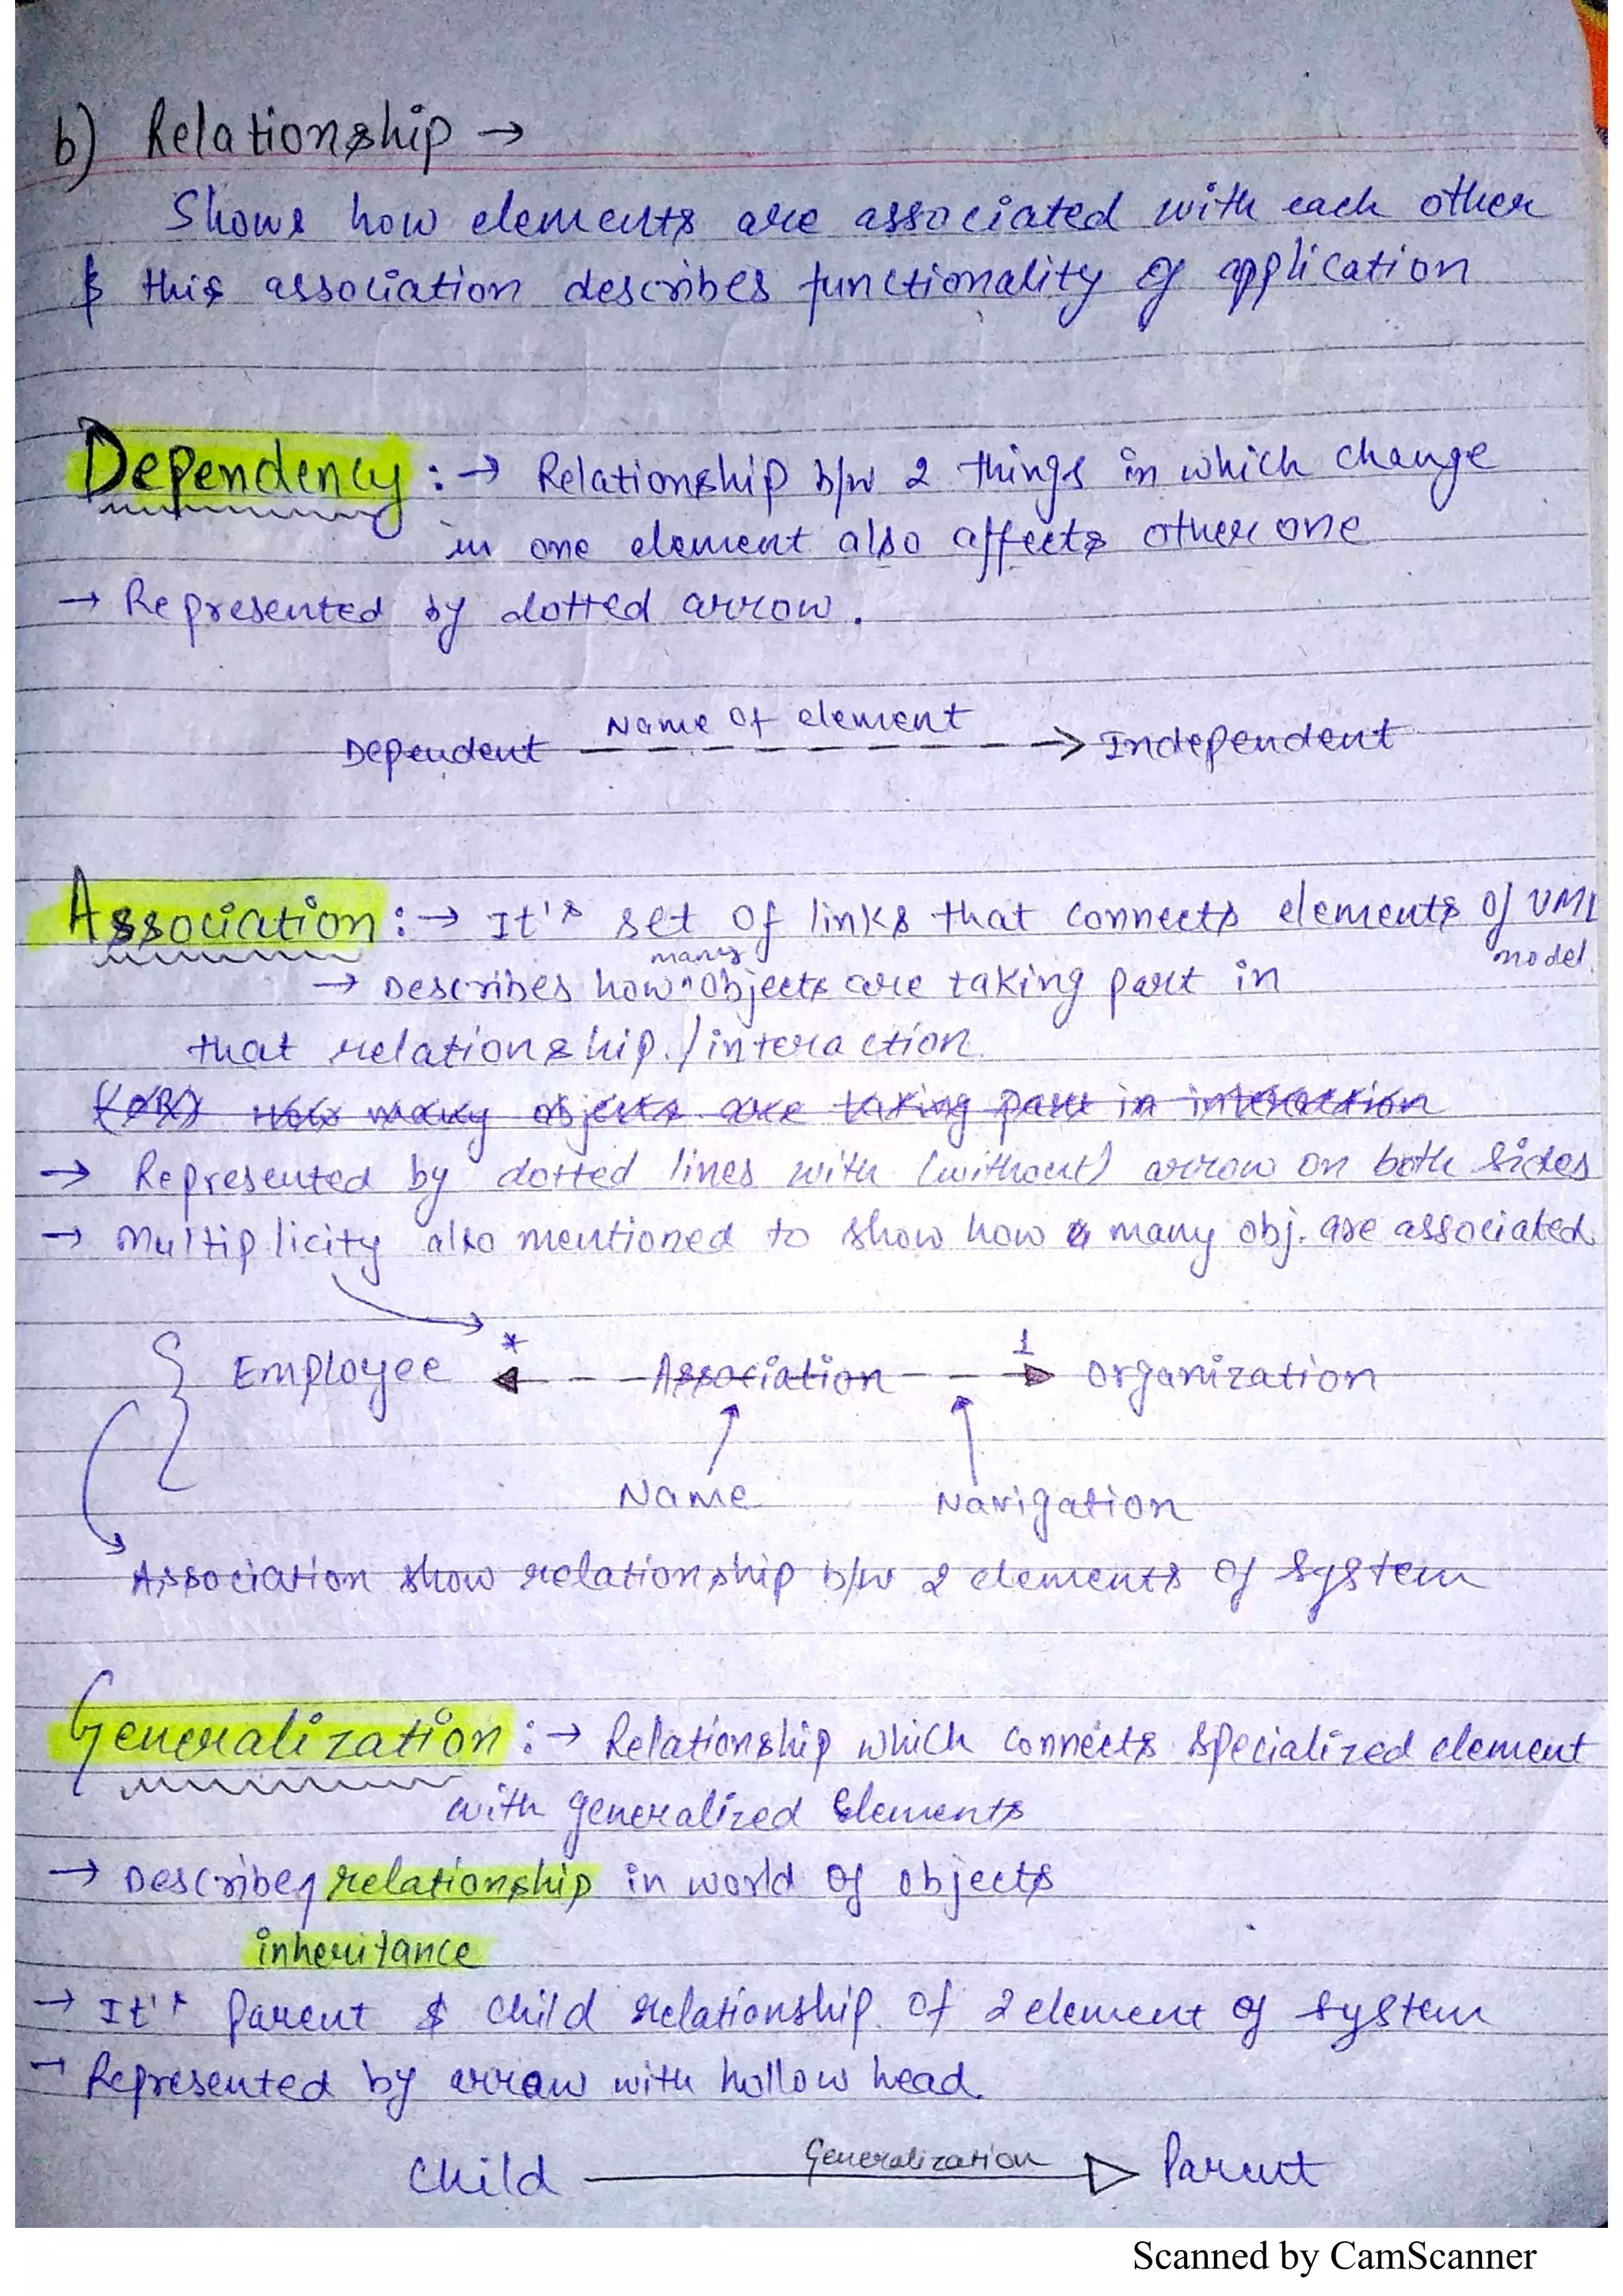 b) Relationship →
Shows how elements are associated with each other
& this association describes functionality of application
Dependency :→ Relationship b/w 2 things in which change
in one element also affects other one
→ Represented by dotted arrow.
Name of element
Dependent - - - - - - -> Independent
Association :→ It's set of links that connects elements of UML
model
many
→ Describes how ^ objects are taking part in
that relationship./interaction
(OR) How many objects are taking part in interaction
→ Represented by dotted lines with (without) arrow on both sides
→ Multiplicity also mentioned to show how many obj. are associated
* 1
Employee ◄ - - - Association - - - ► Organization
Name Navigation
Association show relationship b/w 2 elements of system
Generalization :→ Relationship which connects specialized element
with generalized Elements
→ Describes relationship in world of objects
inheritance
→ It's Parent & child relationship of 2 element of system
→ Represented by arrow with hollow head.
Generalization
Child ———▷ Parent
Scanned by CamScanner